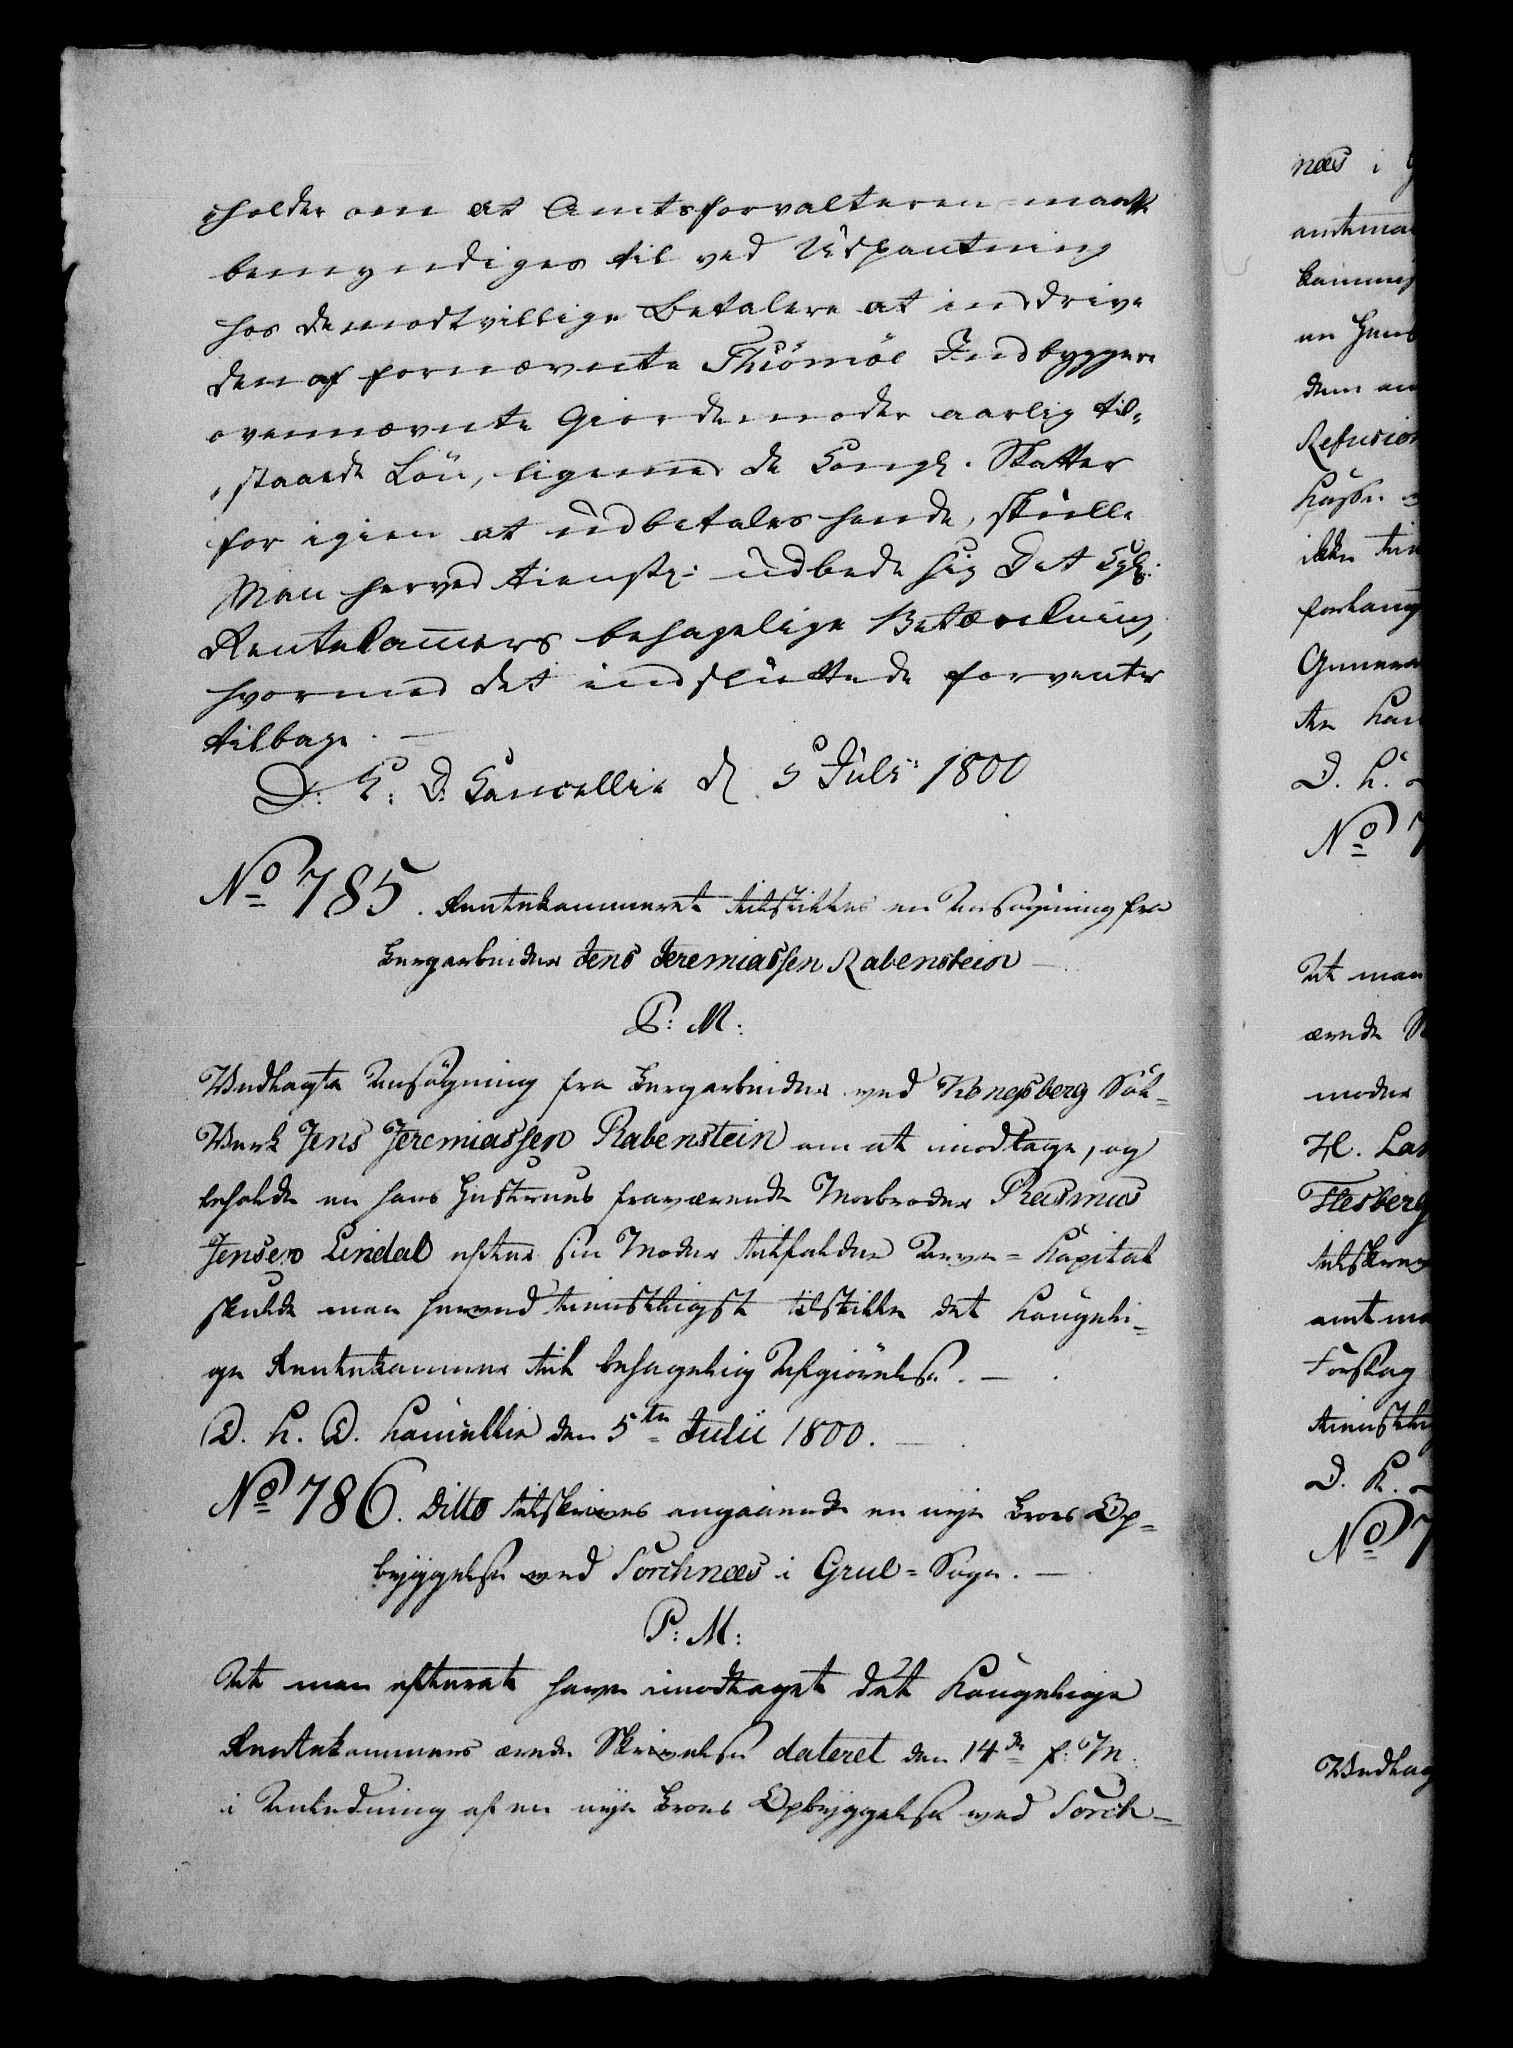 holder om at Amtsforvalteren maatte
bemyndiges til ved Udpantning
hos de modtvillige Betalere at inddrive
den af fornævnte Thüömöe Indbyggere
ovennævnte Giordemoder aarlig til-
staaede Løn, ligemed de Kongl. Skatter
for igien at udbetales hende, skulle
Man herved tienstl: udbede sig Det Kgl:
Rentekamers behagelige Betænkning,
hvormed det indsluttede forventes
tilbage. —
D: K: D: Cancellie d. 5 Juli 1800
No 785. Rentekammeret tilstilles en Ansøgning fra
Bergarbeider Jens Jeremiassen Rabenstein —
P: M:
Vedlagte Ansøgning fra Bergarbeider ved Kongsberg Söl-
Verk Jens Jeremiassen Rabenstein om at imodtage, og
beholde en hans Hustrues fraværende Morbroder Rasmus
Jensen Lindal efter sin Moder tilfalden Arve-Kapital
skulde man herved tienstligst tilstille det kongeli-
ge Rentekammer til behagelig Afgiörelse. —
D. K. D. Kancellie den 5te Julii 1800. —
No 786. Ditto tilskrives angaaende en nye Broes Op-
byggelse ved Sorchnæs i Grue-Sogn. —
P: M:
At man efterat have imodtaget det kongelige
Rentekammers ærede Skrivelse dateret den 14de f: M.
i Anledning af en nye Broes Opbyggelse ved Sorch-
næs i
Refusion
ikke
D. K.
No 7
At man
ærede
moder
H.
Flesberg
Forslag
D. K.
No 7
Vedlag